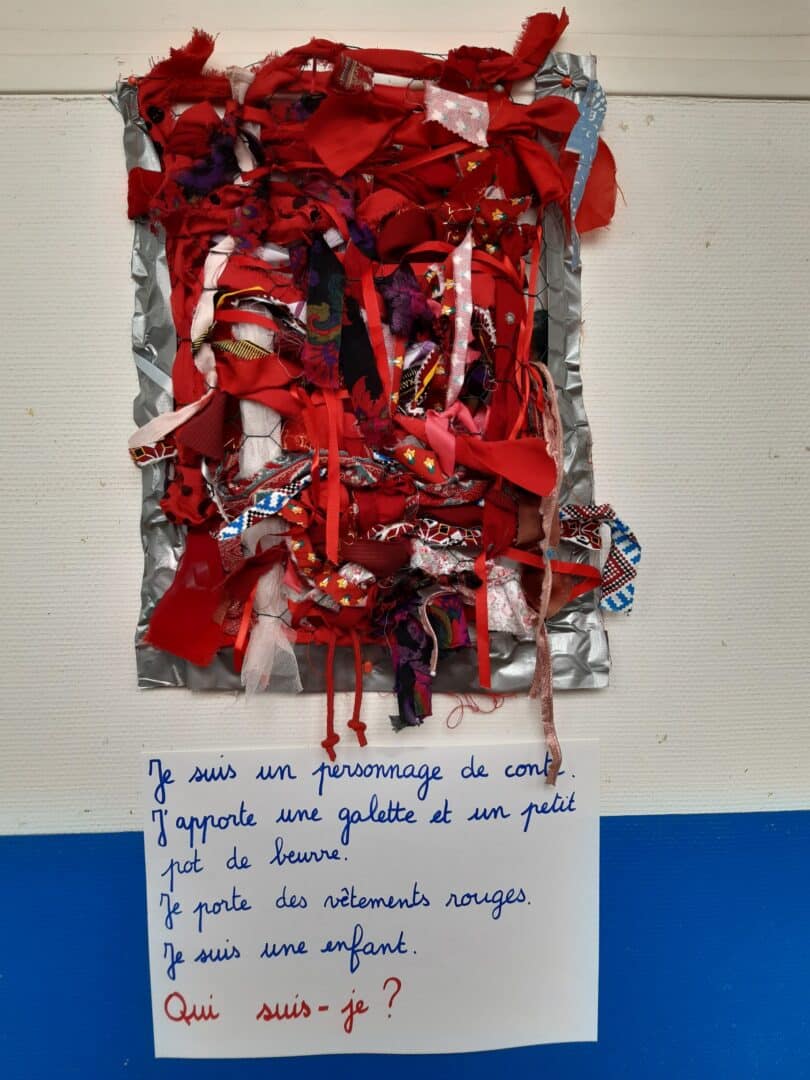 Je suis un personnage de conte.
J'apporte une galette et un petit
pot de beurre.
Je porte des vêtements rouges.
Je suis une enfant.
Qui suis-je ?